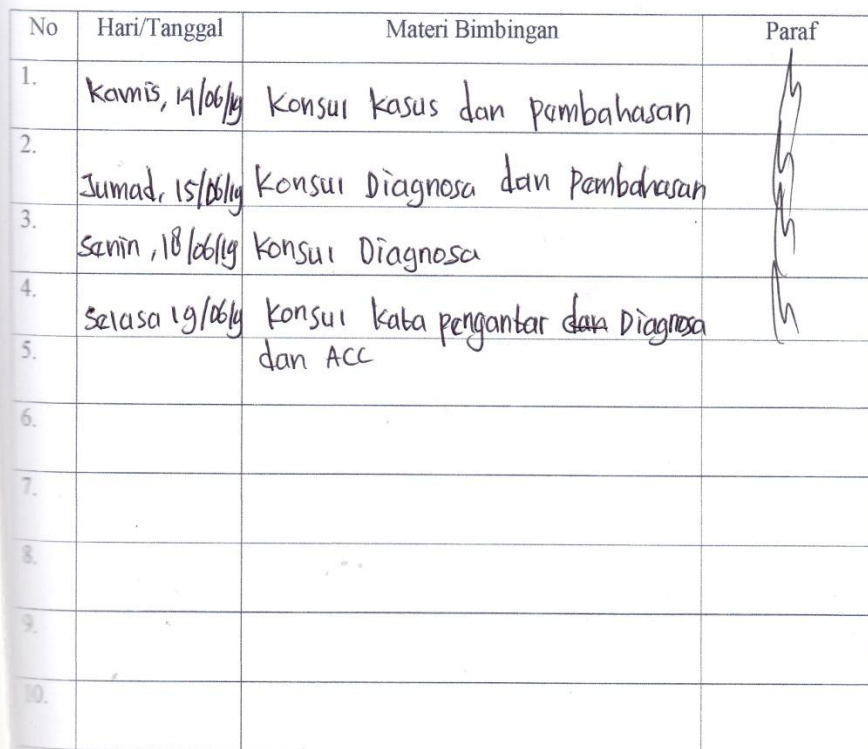 No Hari/Tanggal Materi Bimbingan Paraf
1. Kamis, 14/06/19 Konsul kasus dan pembahasan
2. Jumad, 15/06/19 Konsul Diagnosa dan Pembahasan
3. Senin, 18/06/19 Konsul Diagnosa
4. Selasa 19/06/19 Konsul kata pengantar dan Diagnosa
5. dan ACC
6.
7.
8.
9.
10.